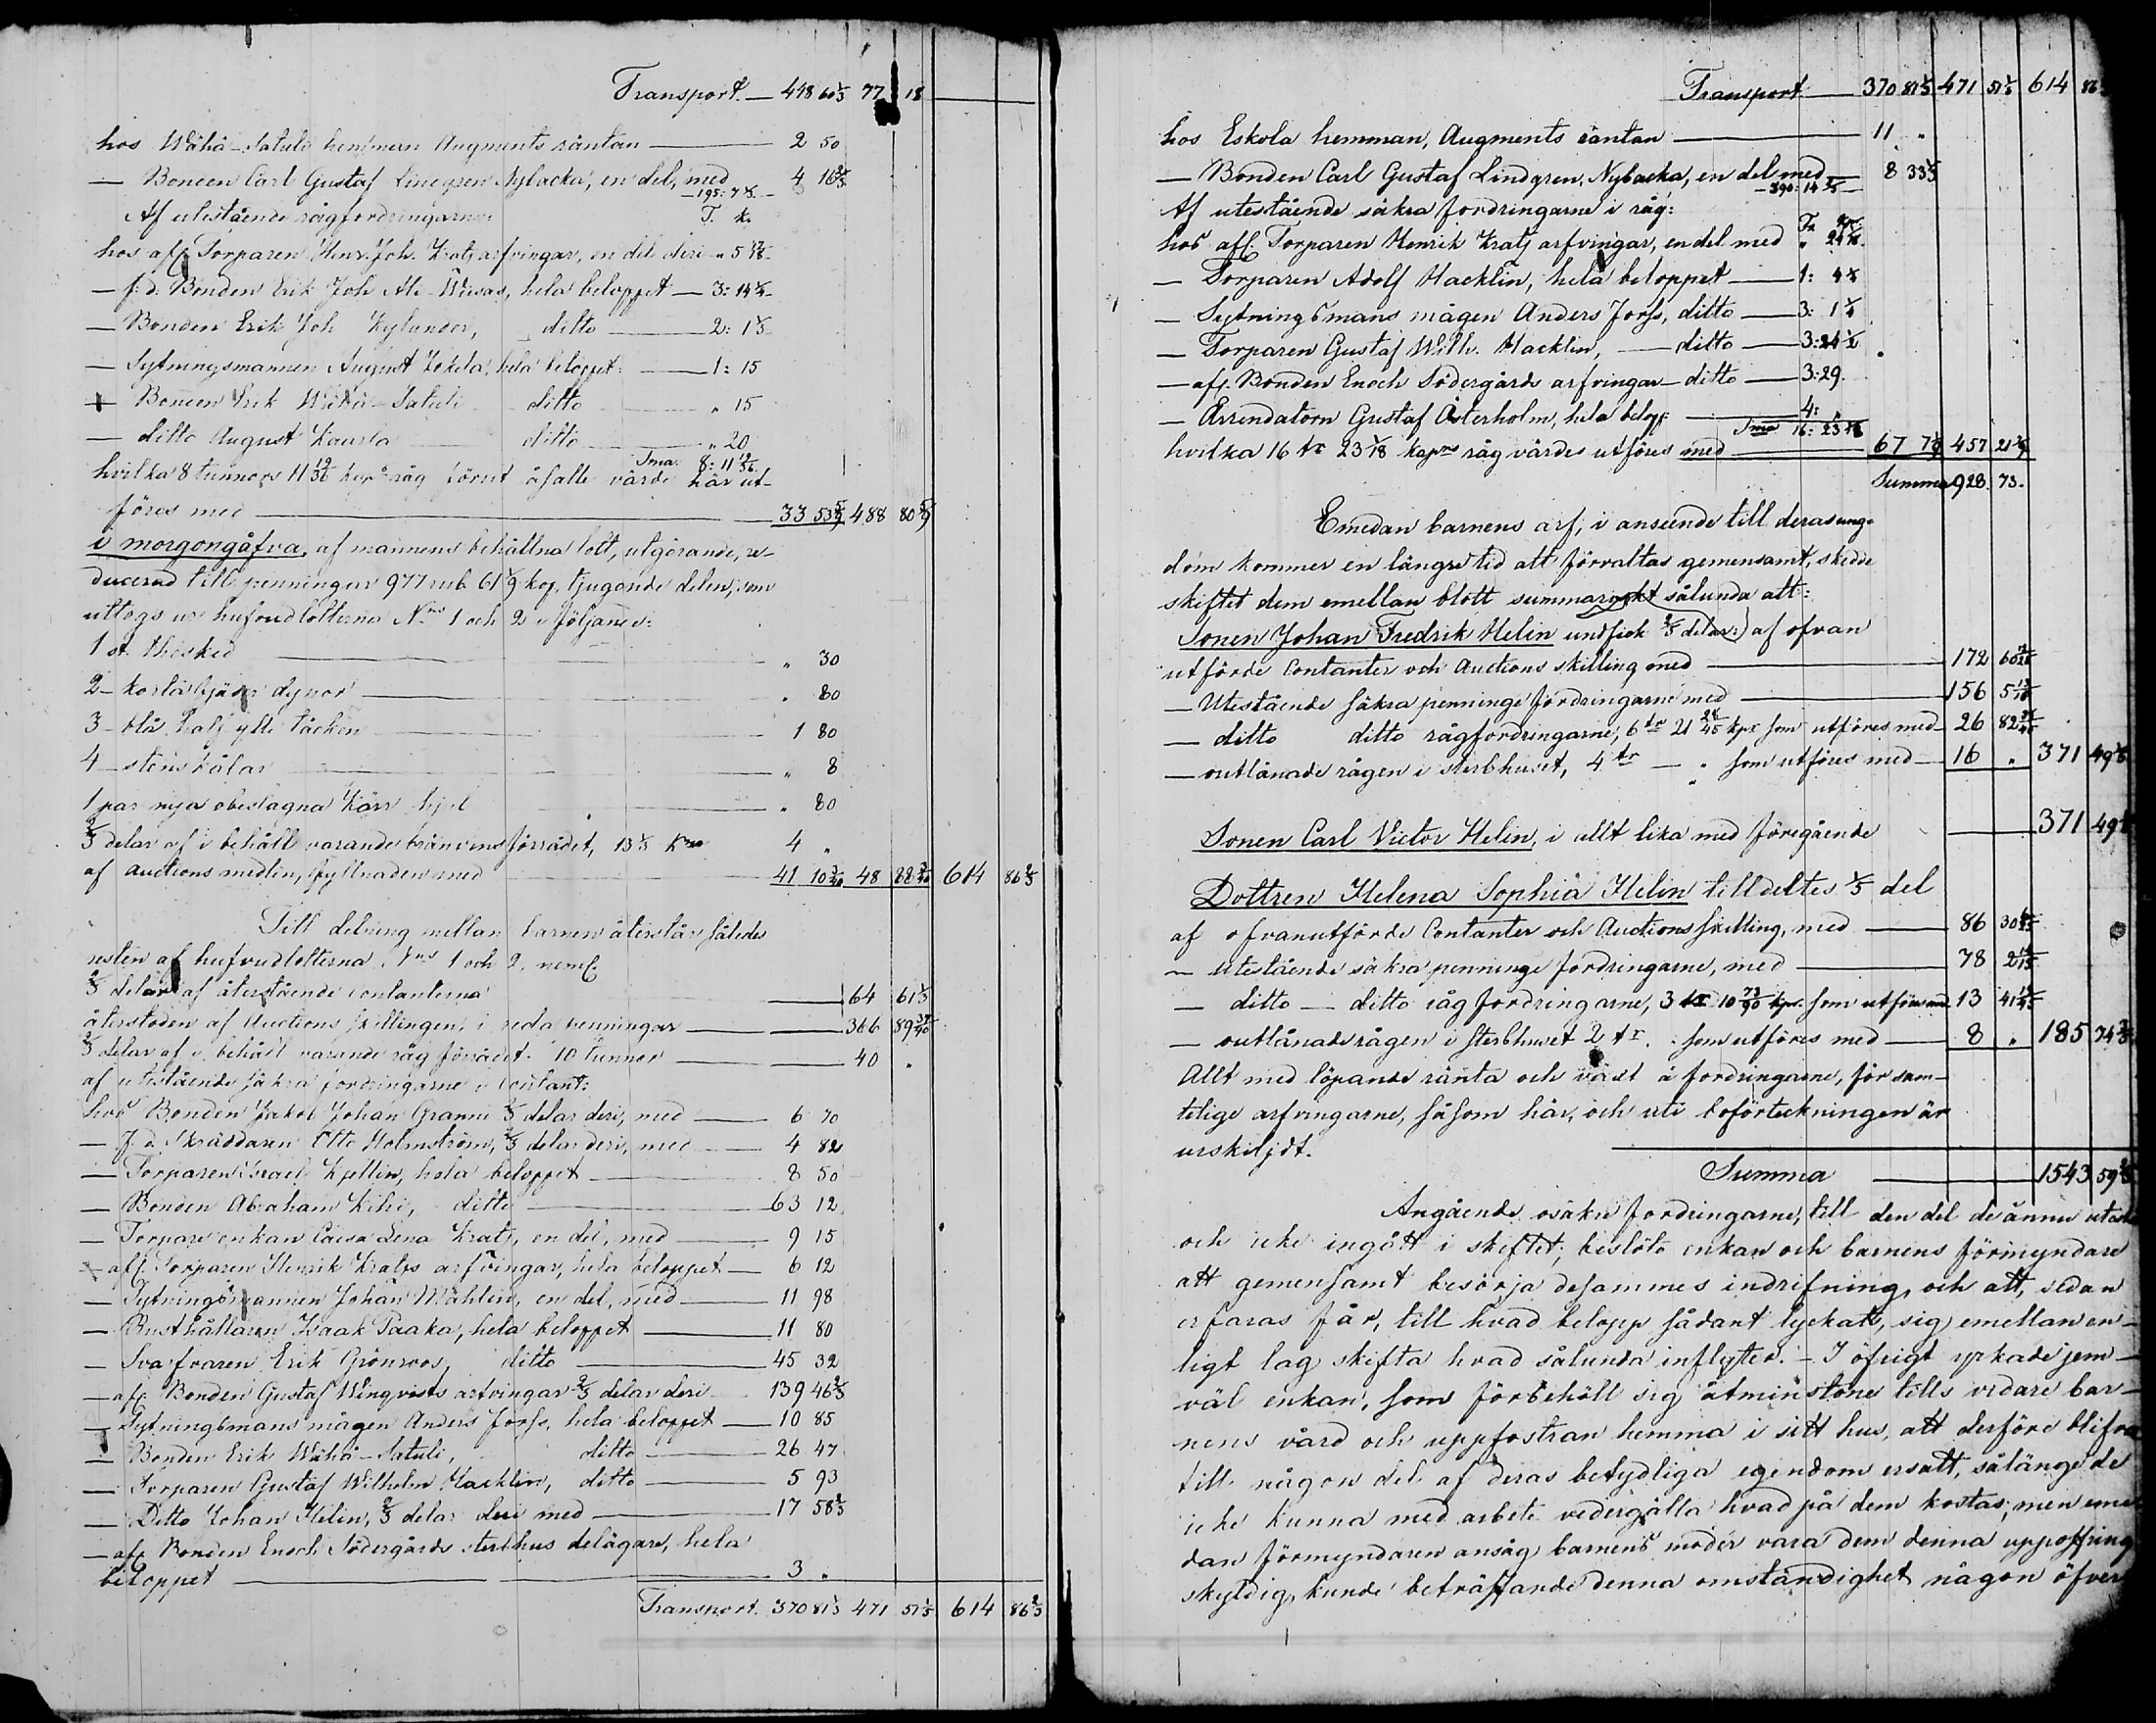 Transport. — 448 60 1/3 77 18
hos Wähä-Satuli hemmern Augments räntan — 2 50
— Bonden Carl Gustaf Lindgren Nybacka, en del, med 4 16 2/3
Af utestående rågfordringarne T. k.
hos afl. Torparen Henr. Joh. Kratz arfvingar, en del deri „ 5
— f. d. Bonden Erik Joh Ali-Wiisas, hela beloppet — 3: 14
— Bonden Erik Joh Kylander, ditto — 2: 1
— Sytningsmannen August Jokela, hela beloppet — 1: 15
— Bonden Erik Wähä-Satuli ditto „ 15
— ditto August Kaarla ditto „ 20
Sma: 8: 11 19/36
hvilka 8 tunnors 11 19/36 kapr råg förut åsatte värde här ut-
föres med — 33 53 5/9 488 80 5/9
i morgongåfva, af mannens behållna lott, utgörande, re-
ducerad till penningar 977 rub 61 1/9 kop. tjugonde delen, som
uttogs ur hufvudlotterna Nris 1 och 2 i följande:
1 st. thesked „ 30
2 — korta fjäder dynor „ 80
3 — blå half ylle täcken 1 80
4 — stenskålar „ 8
1 par nya obeslagna kärr hjul „ 80
2/3 delar af i behåll varande bränvinsförrådet, 13 1/3 knr 4 „
af Auctions medlen, fyllnaden med 41 10 48 88 614 86 2/3
Till delning mellan barnen återstår således
resten af hufvudlotterna Nris 1 och 2. neml.
2/3 delar af återstående contanterna — 64 61 1/3
återstoden af Auctions skillingen, i reda penningar — 366 89 37/90
2/3 delar af i behåll varande råg förrådet. 10 tunnor — 40 „
af utestående säkra fordringarne i contant:
hos Bonden Jakob Johan Granni 2/3 delar deri, med — 6 70
— f. d. Skräddaren Otto Holmström, 2/3 delar deri, med — 4 82
— Torparen Israel Kjellin, hela beloppet — 8 50
— Bonden Abraham Kihi, ditto — 63 12
— Torpare enkan Caisa Lena Kratz, en del, med — 9 15
— afl. Torparen Henrik Kratzs arfvingar, hela beloppet — 6 12
— Sytningsmannen Johan Wåhlin, en del, med — 11 98
— Rusthållaren Isaak Paaka, hela beloppet — 11 80
— Svarfvaren Erik Grönroos, ditto — 45 32
— afl. Bonden Gustaf Winqvists arfvingar 2/3 delar deri 139 46 2/3
— Sytningsmans mågen Anders Jorss, hela beloppet — 10 85
— Bonden Erik Wähä-Satuli, ditto — 26 47
— Torparen Gustaf Wilhelm Hacklin, ditto — 5 93
— Ditto Johan Helin, 2/3 delar deri med — 17 58 2/3
— afl. Bonden Enoch Södergårds sterbhus delägare, hela
beloppet — 3 „
Transport. 370 81 1/3 471 51 1/3 614 86 2/3
Transport — 370 81 1/3 471 51 1/3 614 86
hos Eskola hemman, Augments räntan — 11 „
— Bonden Carl Gustaf Lindgren, Nybacka, en del med — 8 33 1/3
Af utestående säkra fordringarne i råg:
hos afl. Torparen Henrik Kratz arfvingar, en del med „ 24
— Torparen Adolf Hacklin, hela beloppet — 1: 4
— Sytningsmans mågen Anders Jorss, ditto — 3: 1
— Torparen Gustaf Wilh. Hacklin, — ditto — 3: 21
— afl. Bonden Enoch Södergårds arfvingar — ditto — 3: 29.
— Arrendatorn Gustaf Österholm, hela belopp: — 4: „
Sma 16: 23 1/18
hvilka 16 tr 23 1/18 kaprs råg värdes utföres med — 67 7 457 21
Summa 928. 73.
Emedan barnens arf, i anseende till deras ung-
dom kommer en längre tid att förvaltas gemensamt, skedde
skiftet dem emellan blott summariskt sålunda att:
Sonen Johan Fredrik Helin undfick 2/5 delar:) af ofvan
utförde Contanter och Auctions skilling med — 172 60
— Utestående säkra penninge fordringarne med — 156 5
— ditto ditto rågfordringarne, 6 tr 21 28/45 kpr som utföres med — 26 82
— outlånade rågen i sterbhuset, 4 tr — „ som utföres med — 16 „ 371 49
Sonen Carl Victor Helin, i allt lika med föregående — 371 49
Dottren Helena Sophia Helin tilldeltes 1/5 del
af ofvanutförde Contanter och Auctions skilling, med — 86 30
— utestående säkra penninge fordringarne, med — 78 2
— ditto — ditto råg fordringarne, 3 tr 10 73/90 kpr. som utföres med 13 41
— outlånade rågen i sterbhuset 2 tr. „ som utföres med — 8 „ 185 74
Allt med löpande ränta och växt å fordringarne, för sam-
telige arfvingarne, såsom här, och uti boförteckningen är
urskiljdt.
Summa — 1543 59
Angående osäkra fordringarne, till den del de ännu utestå
och icke ingått i skiftet; beslöto enkan och barnens förmyndare
att gemensamt besörja desammes indrifning, och att, sedan
erfaras får, till hvad belopp sådant lyckats, sig emellan en-
ligt lag skifta hvad sålunda inflyter. — I öfrigt yrkade jem-
väl enkan, som förbehöll sig åtminstone tills vidare bar-
nens vård och uppfostran hemma i sitt hus, att derföre blifva
till någon del af deras betydliga egendom ersatt, sålänge de
icke kunna med arbete vedergälla hvad på dem kostas; men eme-
dan förmyndaren ansåg barnens moder vara dem denna uppoffring
skyldig, kunde beträffande denna omständighet någon öfver